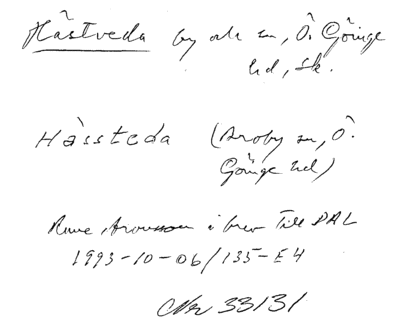 Hästveda by och sn, Ö. Göinge
hd, Sk.
Hàssteda (Broby sn, Ö.
Göinge hd)
Rune Aronsson i brev till DAL
1993-10-06/135-E4
CNr 33131